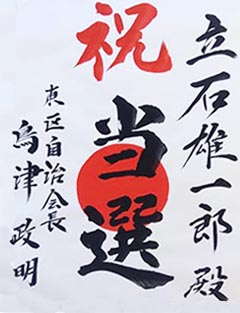 立石雄一郎殿
祝
当選
東区自治会長
島津政明